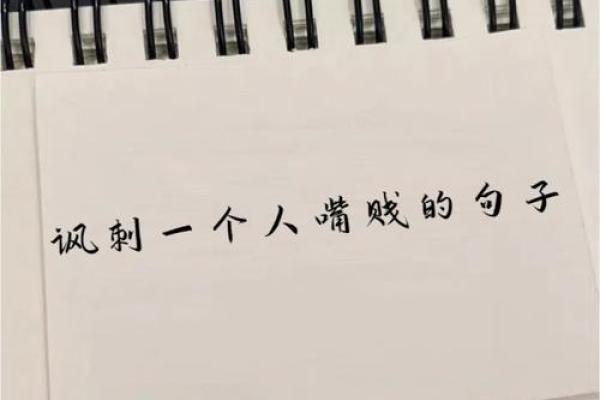 讽刺一个人嘴贱的句子